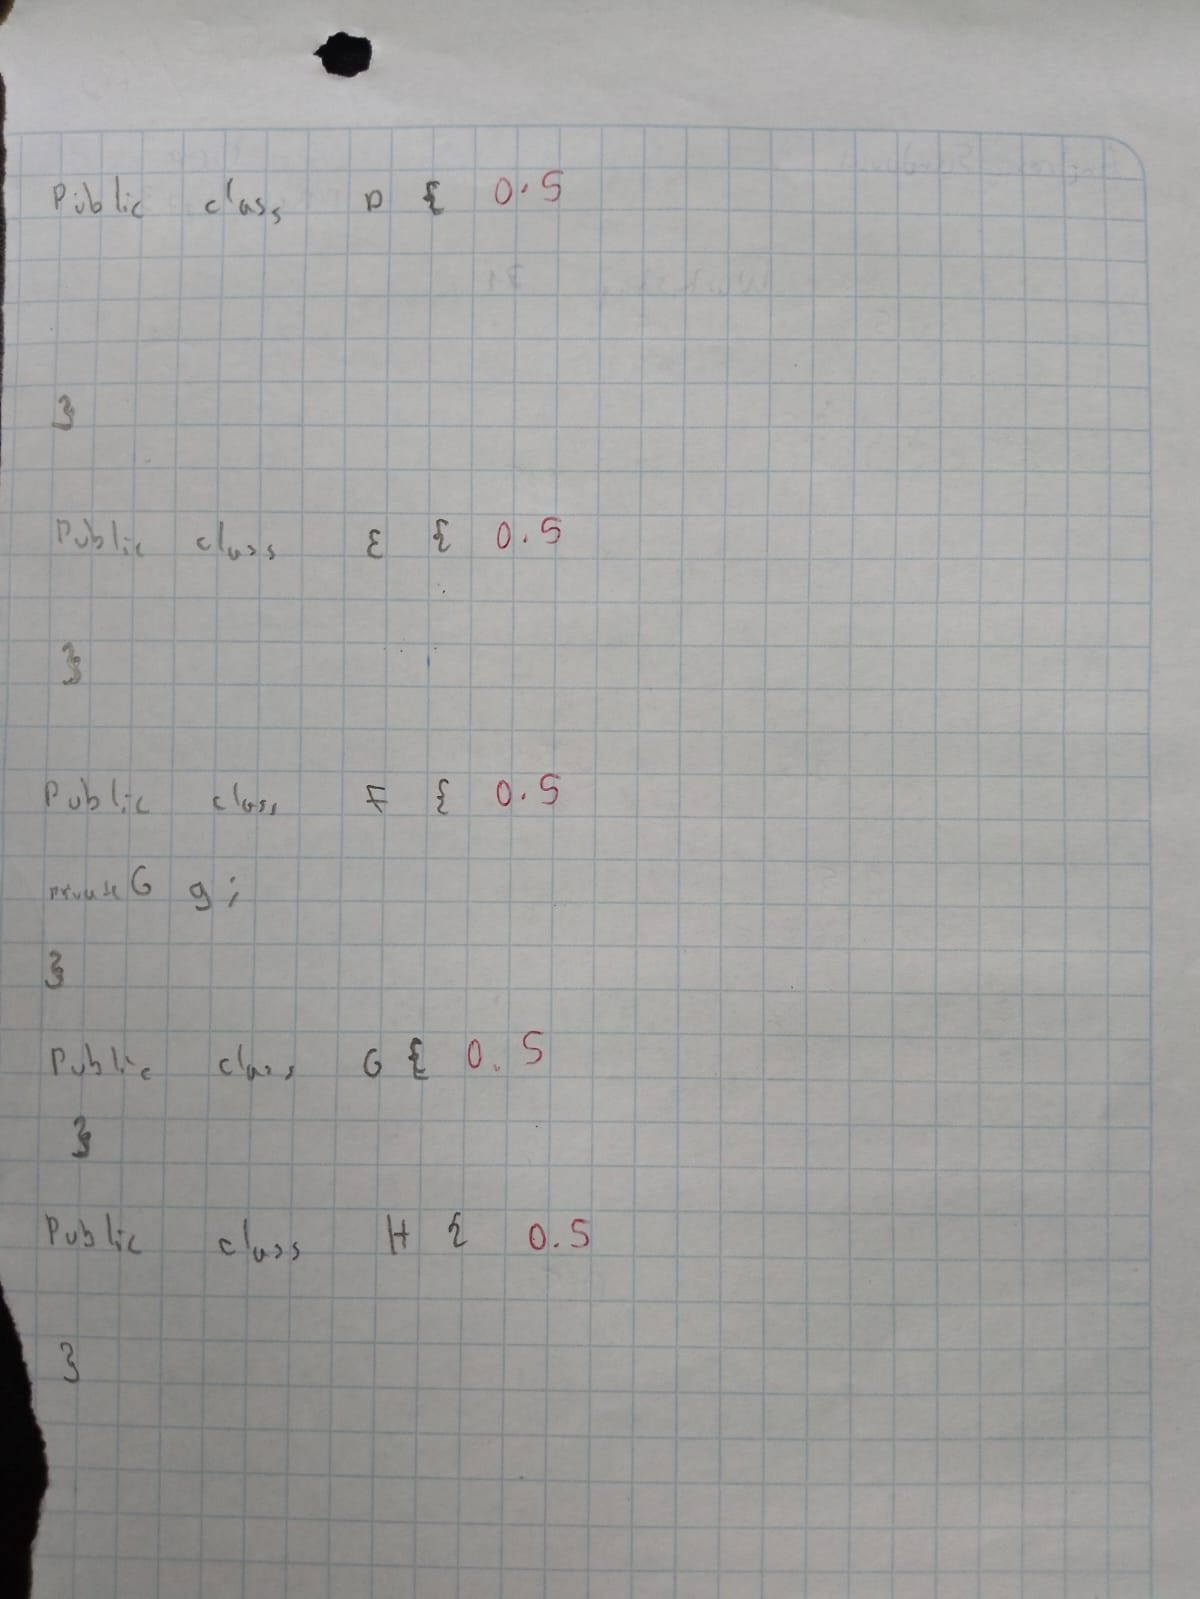 Public class D { 0.5
}
Public class E { 0.5
}
Public class F { 0.5
private G g;
}
Public class G { 0.5
}
Public class H { 0.5
}